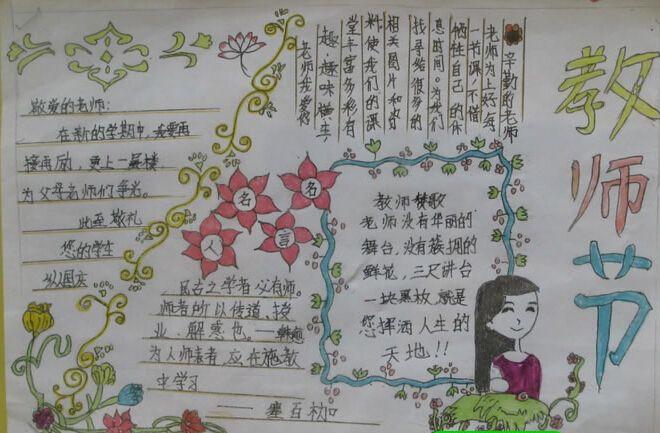 教师节
辛勤的老师
老师为上好每
一节课不惜
牺牲自己的休
息时间。为我们
找寻给很多的
相关图片和资
料使我们的课
堂丰富多彩有
趣,趣味横生
老师我爱你
敬爱的老师:
在新的学期中,我要再
接再励,更上一层楼
为父母老师们争光。
此至敬礼
您的学生
名人名言
古之学者必有师。
师者所以传道,授
业、解惑也。——韩愈
为人师表者应在施教
中学习
——塞百
教师赞歌
老师没有华丽的
舞台,没有簇拥的
鲜花,三尺讲台
一块黑板,就是
您挥洒人生的
天地!!